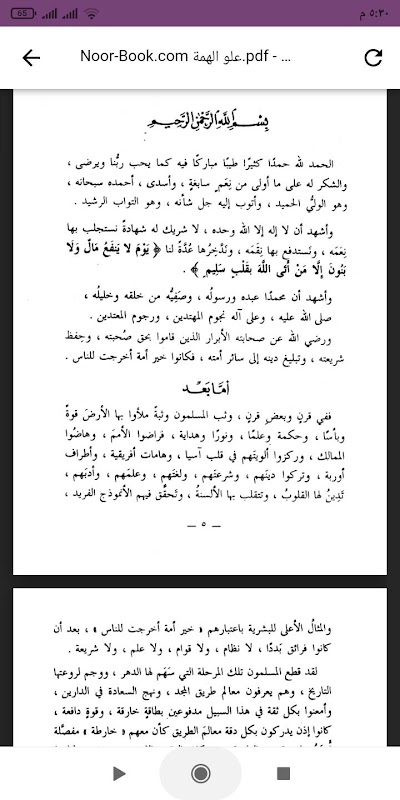 65
٥:٣٠ م
Noor-Book.com علو الهمة.pdf - ...
بِسْمِ اللَّهِ الرَّحْمَنِ الرَّحِيمِ
الحمد لله حمدًا كثيرًا طيبًا مباركًا فيه كما يحب ربُّنا ويرضى ،
والشكر له على ما أولى من نِعَمٍ سابغةٍ ، وأسدى ، أحمده سبحانه ،
وهو الوليُّ الحميد ، وأتوب إليه جل شأنه ، وهو التواب الرشيد .
وأشهد أن لا إله إلا الله وحده ، لا شريك له شهادةً نستجلب بها
نِعَمَه ، ونَستدفع بها نِقَمَه ، ونَدَّخِرُها عُدَّةً لنا ﴿ يَوْمَ لا يَنفَعُ مَالٌ وَلَا
بَنُونَ إِلَّا مَنْ أَتَى اللَّهَ بِقَلْبٍ سَلِيمٍ ﴾ .
وأشهد أن محمدًا عبده ورسولُه ، وصَفِيُّه من خلقه وخليلُه ،
صلى الله عليه ، وعلى آله نجوم المهتدين ، ورجوم المعتدين .
ورضي الله عن صحابته الأبرار الذين قاموا بحق صُحبته ، وحِفظ
شريعته ، وتبليغ دينه إلى سائر أمته ، فكانوا خير أمة أخرجت للناس .
أمّا بَعْد
ففي قرنٍ وبعضِ قرنٍ ، وثب المسلمون وثبةً ملأوا بها الأرضَ قوةً
وبأسًا ، وحكمة وعلمًا ، ونورًا وهداية ، فراضوا الأممَ ، وهاضُوا
الممالك ، وركزوا ألويتَهم في قلب آسيا ، وهامات أفريقية ، وأطراف
أوربة ، وتركوا دينَهم ، وشرعتَهم ، ولغتَهم ، وعلمَهم ، وأدبَهم ،
تَدِينُ لها القلوبُ ، وتتقلب بها الألسنةُ ، وتَحقَّق فيهم الأنموذج الفريد ،
— ٥ —
والمثالُ الأعلى للبشرية باعتبارهم « خير أمة أخرجت للناس » ، بعد أن
كانوا فرائق بَددًا ، لا نظام ، ولا قوام ، ولا علم ، ولا شريعة .
لقد قطع المسلمون تلك المرحلة التي سَهَم لها الدهر ، ووجم لروعتها
التاريخ ، وهم يعرفون معالم طريق المجد ، ونهج السعادة في الدارين ،
وأمعنوا بكل ثقة في هذا السبيل مدفوعين بطاقةٍ خارقة ، وقوةٍ دافعة ،
كانوا إذن يدركون بكل دقة معالمَ الطريق كأن معهم « خارطة » مفصَّلة